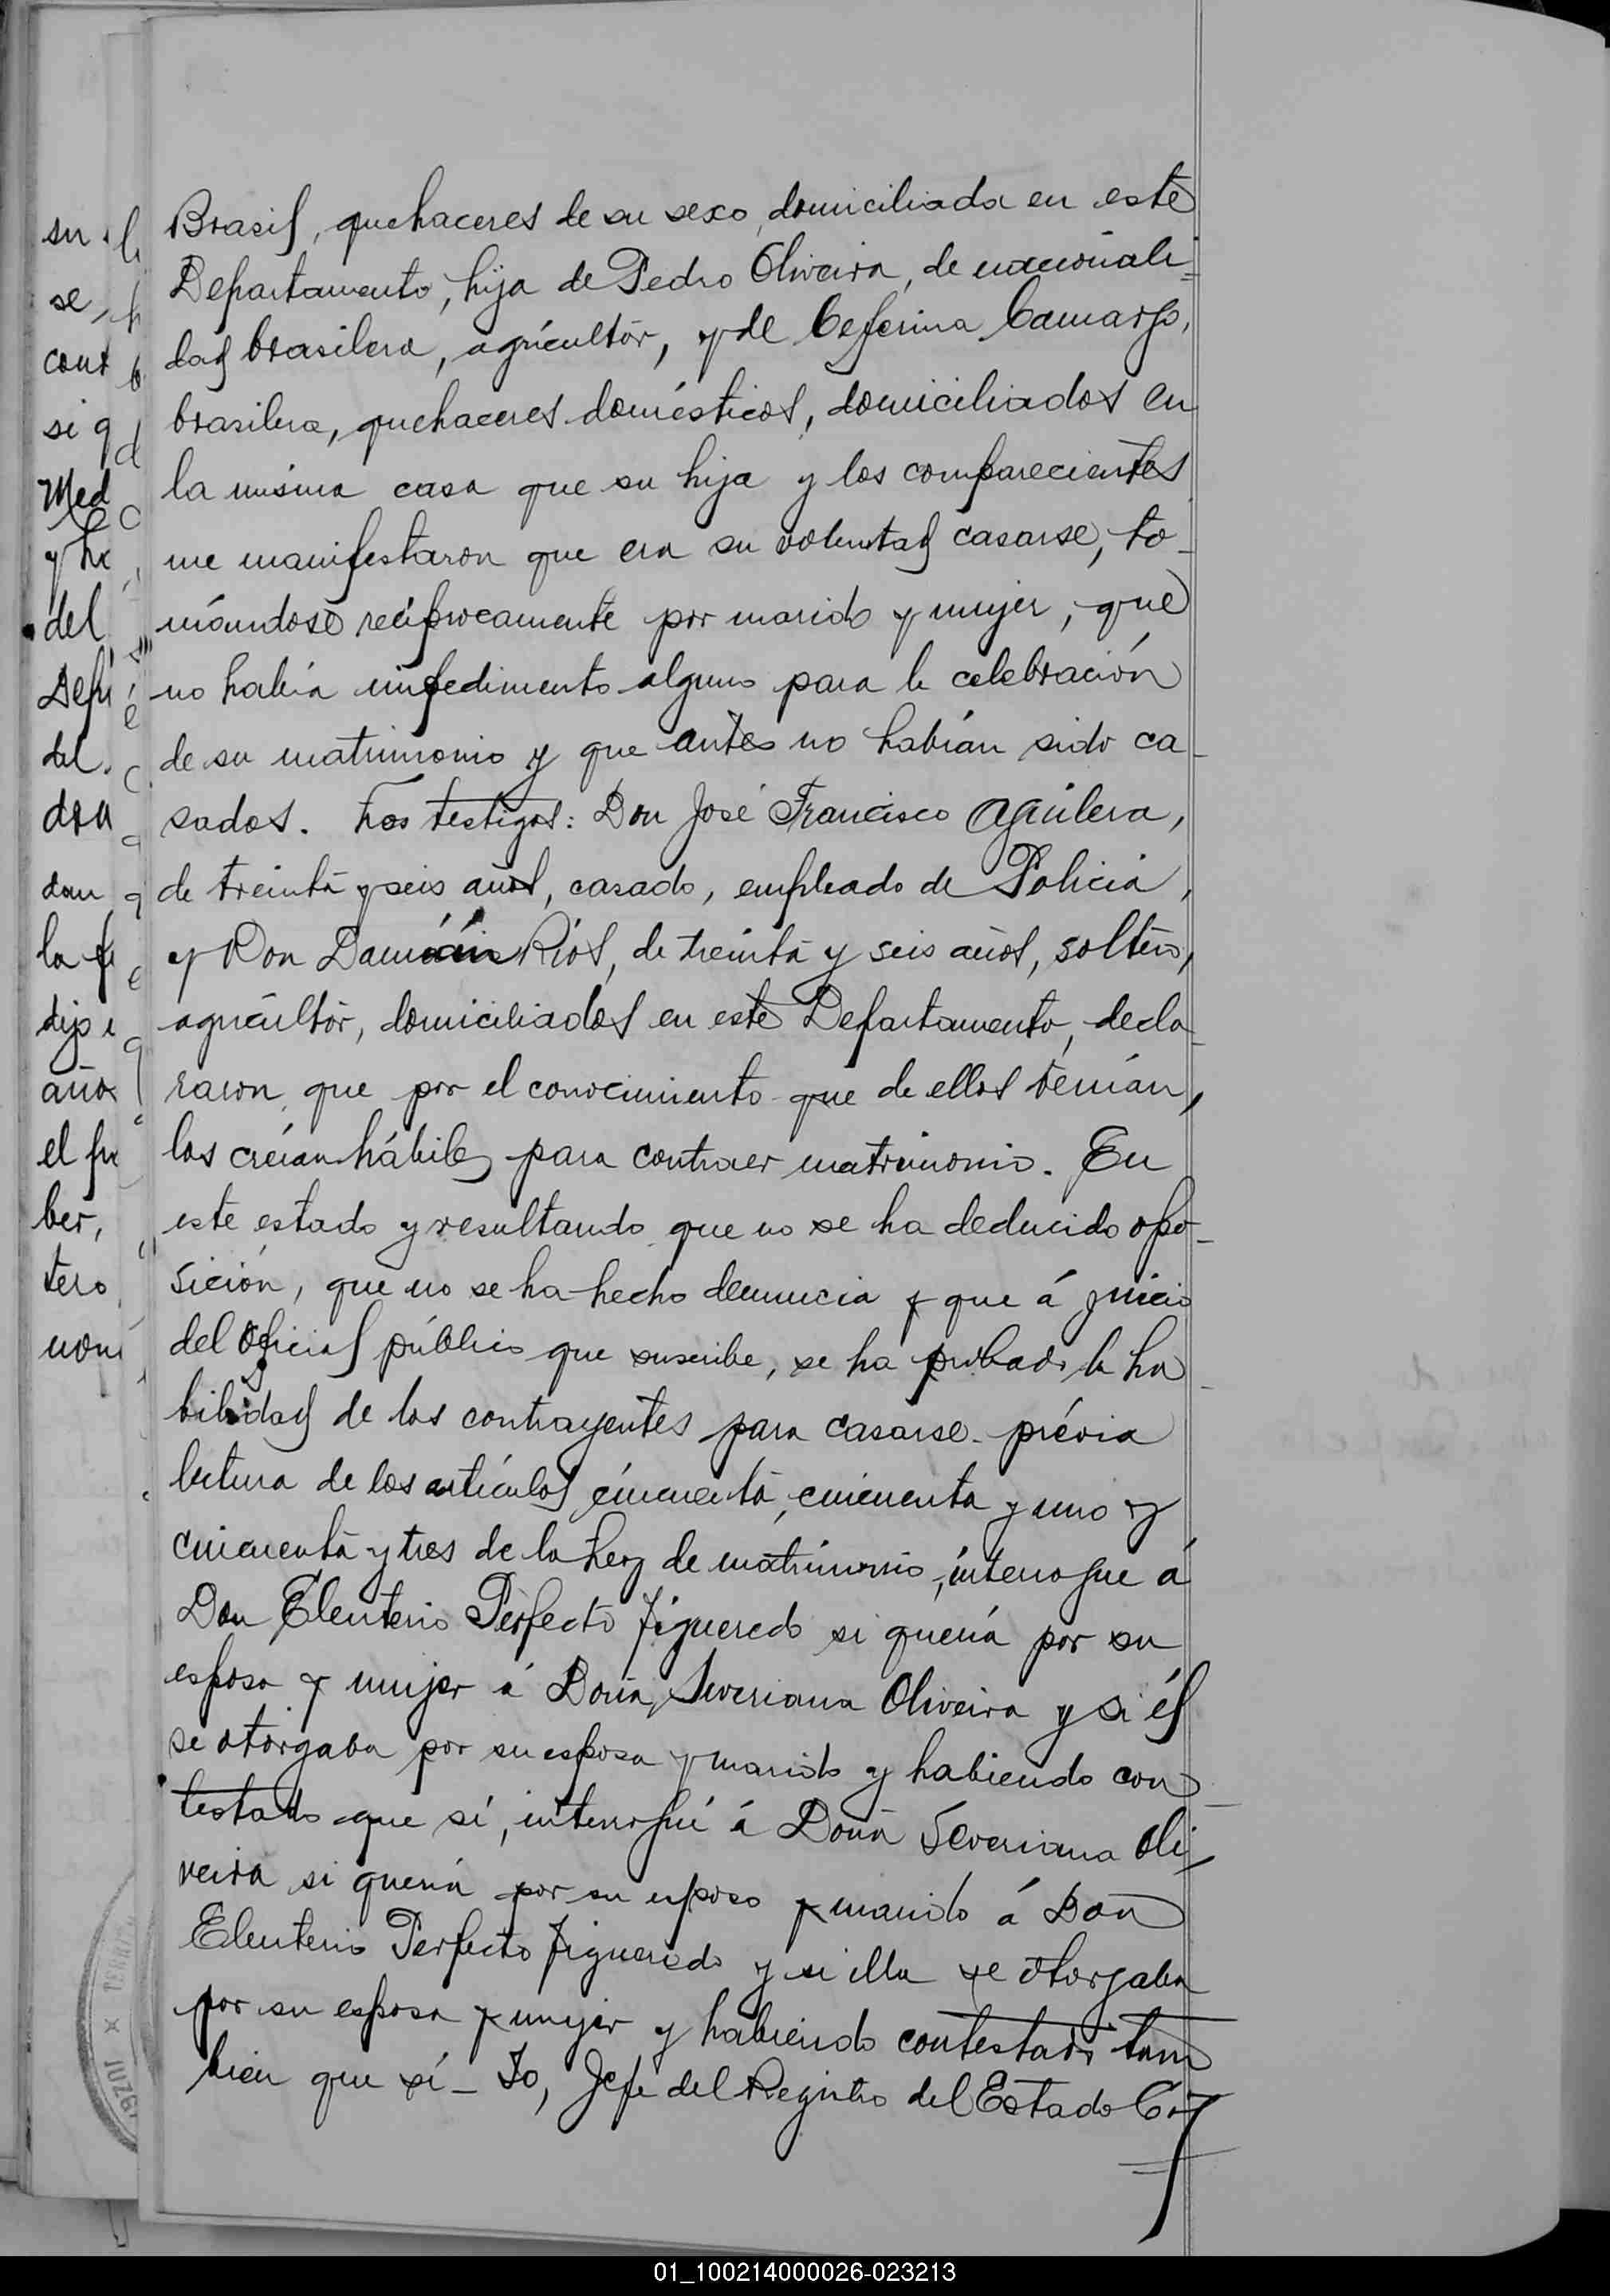 Brasil, quehaceres de su sexo, domiciliada en este
Departamento, hija de Pedro Oliveira, de nacionali=
dad brasilera, agricultor, y de Ceferina Camargo,
brasilera, quehaceres domésticos, domiciliados en
la misma casa que su hija y los comparecientes
me manifestaron que era su voluntad casarse, to-
mándose recíprocamente por marido y mujer, que
no había impedimento alguno para la celebración
de su matrimonio y que antes no habían sido ca-
sados. Los testigos: Don José Francisco Aguilera,
de treinta y seis años, casado, empleado de Policia,
y Don Damián Ríos, de treinta y seis años, soltero,
agricultor, domiciliados en este Departamento, decla-
raron que por el conocimiento que de ellos tenían,
los creían hábiles para contraer matrimonio. En
este estado y resultando que no se ha deducido opo-
sición, que no se ha hecho denuncia y que á juicio
del oficial público que suscribe, se ha probado la ha-
bilidad de los contrayentes para casarse - prévia
lectura de los artículos cincuenta, cincuenta y uno y
cincuenta y tres de la Ley de matrimonio, interogue á
Don Eleuterio Perfecto Figueredo si quería por su
esposa y mujer á Doña Severiana Oliveira y si él
se otorgaba por su esposa y marido y habiendo con-
testado que sí, interrogué á Doña Severiana Oli-
veira si quería por su esposo y marido á Don
Eleuterio Perfecto Figueredo y si ella se otorgaba
por su esposa y mujer y habiendo contestado tam
bien que sí - Yo, Jefe del Registro del Estado Civ
su
se,
cont
si q
Med
y ha
del
del
don
la
dijo
años
el
ber,
tero
01_100214000026-023213